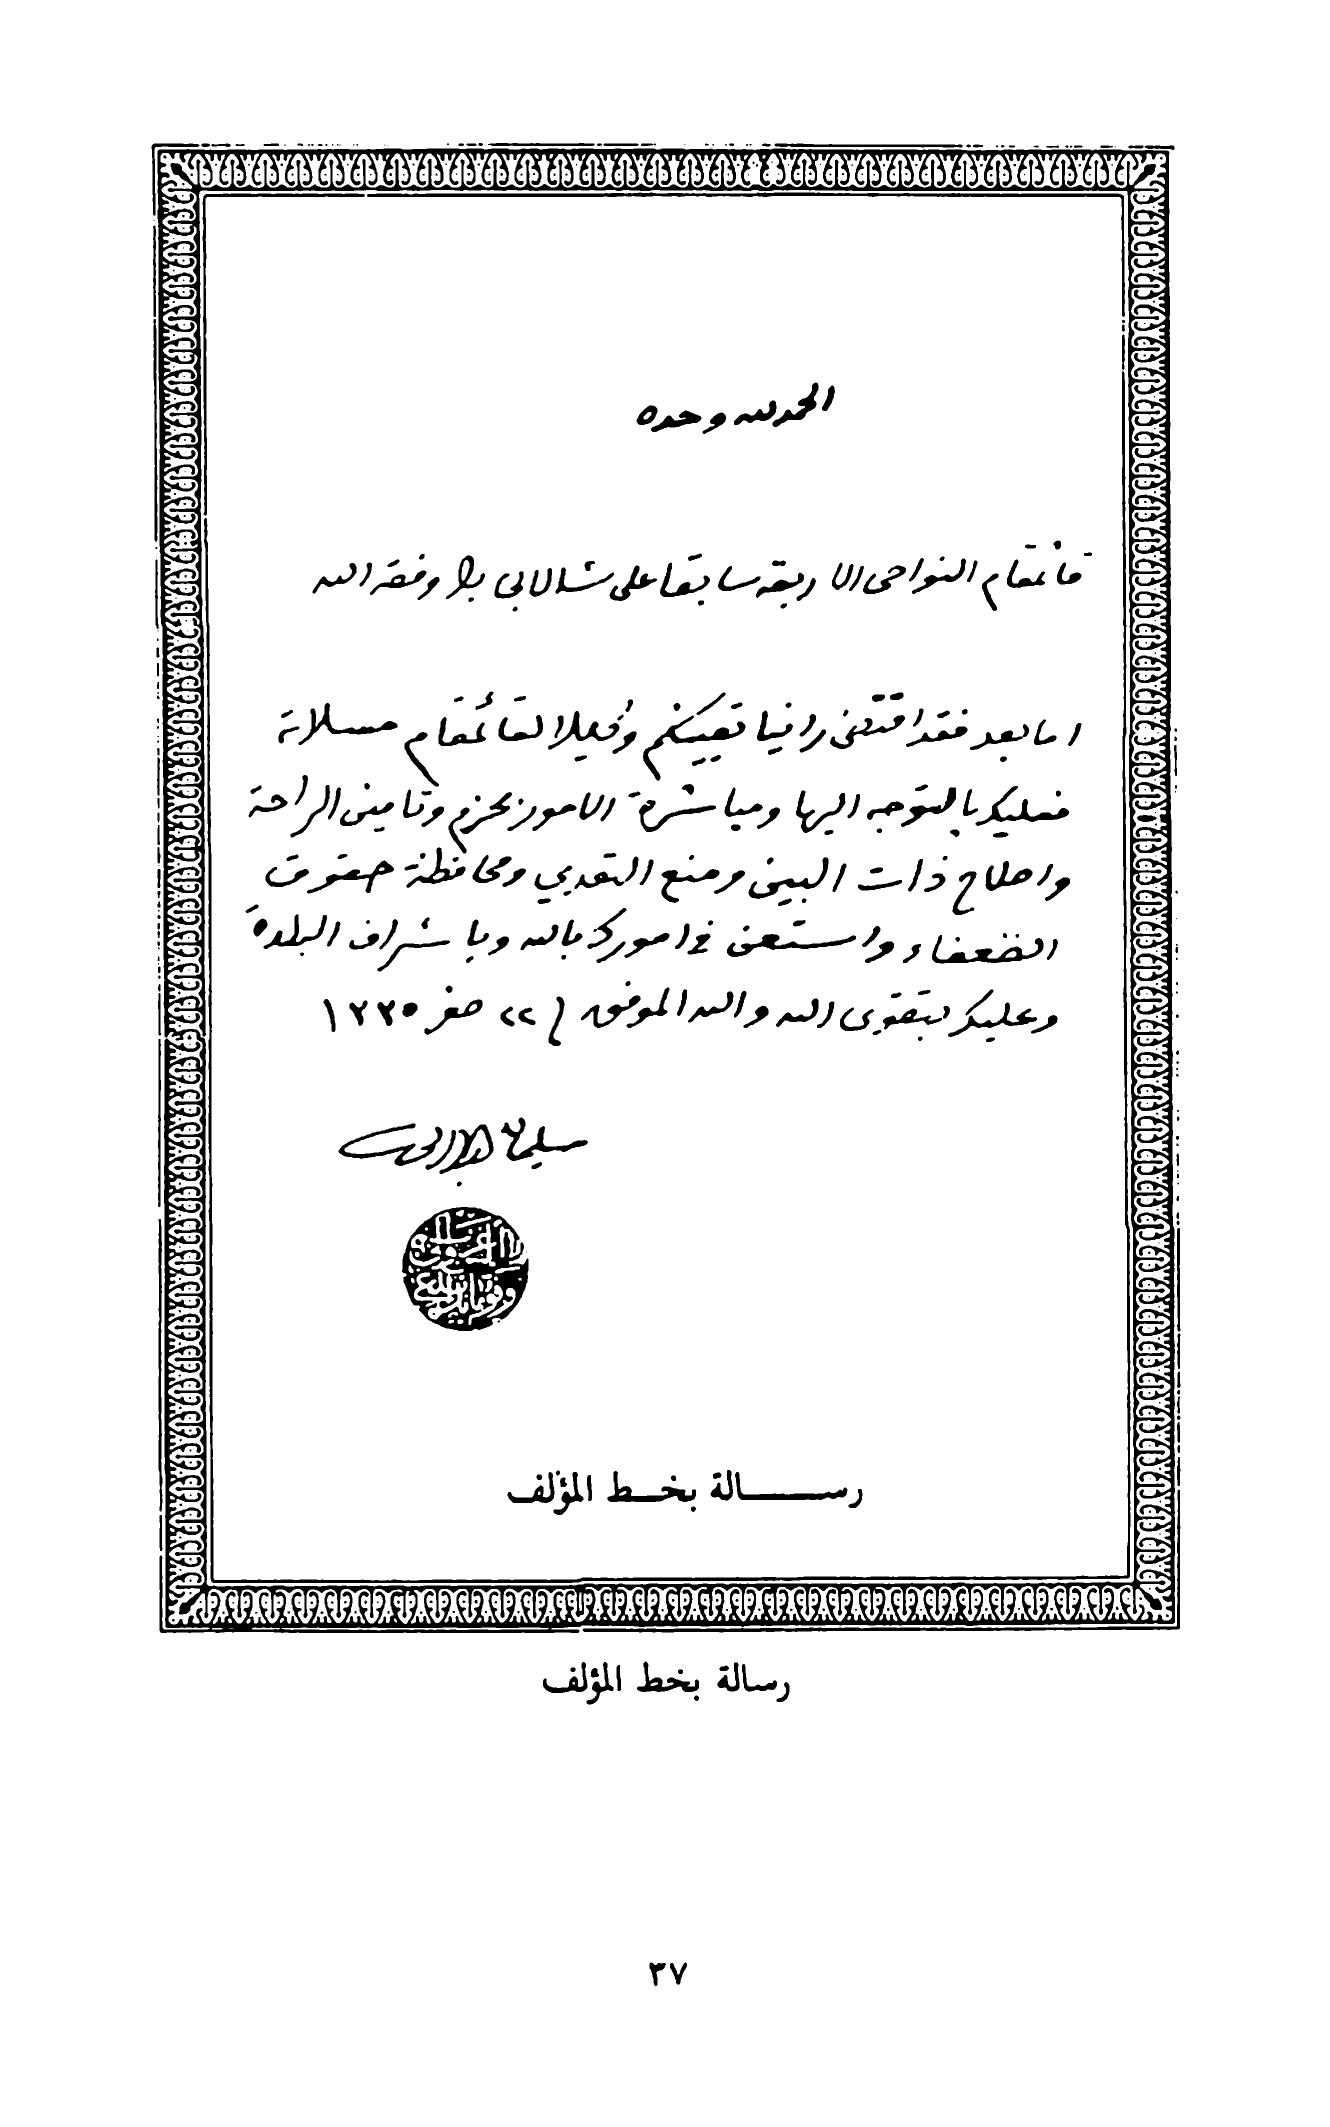 الحمد لله وحده
قائمقام النواحي الاربعة سابقا علي شلابي وفقه الله
اما بعد فقد اقتضى راينا تعيينكم وكيلا لقائمقام مسلاتة
فعليكم بالتوجه اليها ومباشرة الامور بحزم وتامين الراحة
واصلاح ذات البين ومنع التعدي ومحافظة حقوق
الضعفاء واستعن في اموركم بالله وباشراف البلدة
وعليكم بتقوى الله والله الموفق ٢٢ صفر ١٣٣٥
سليمان الباروني
رسالة بخط المؤلف
رسالة بخط المؤلف
٣٧